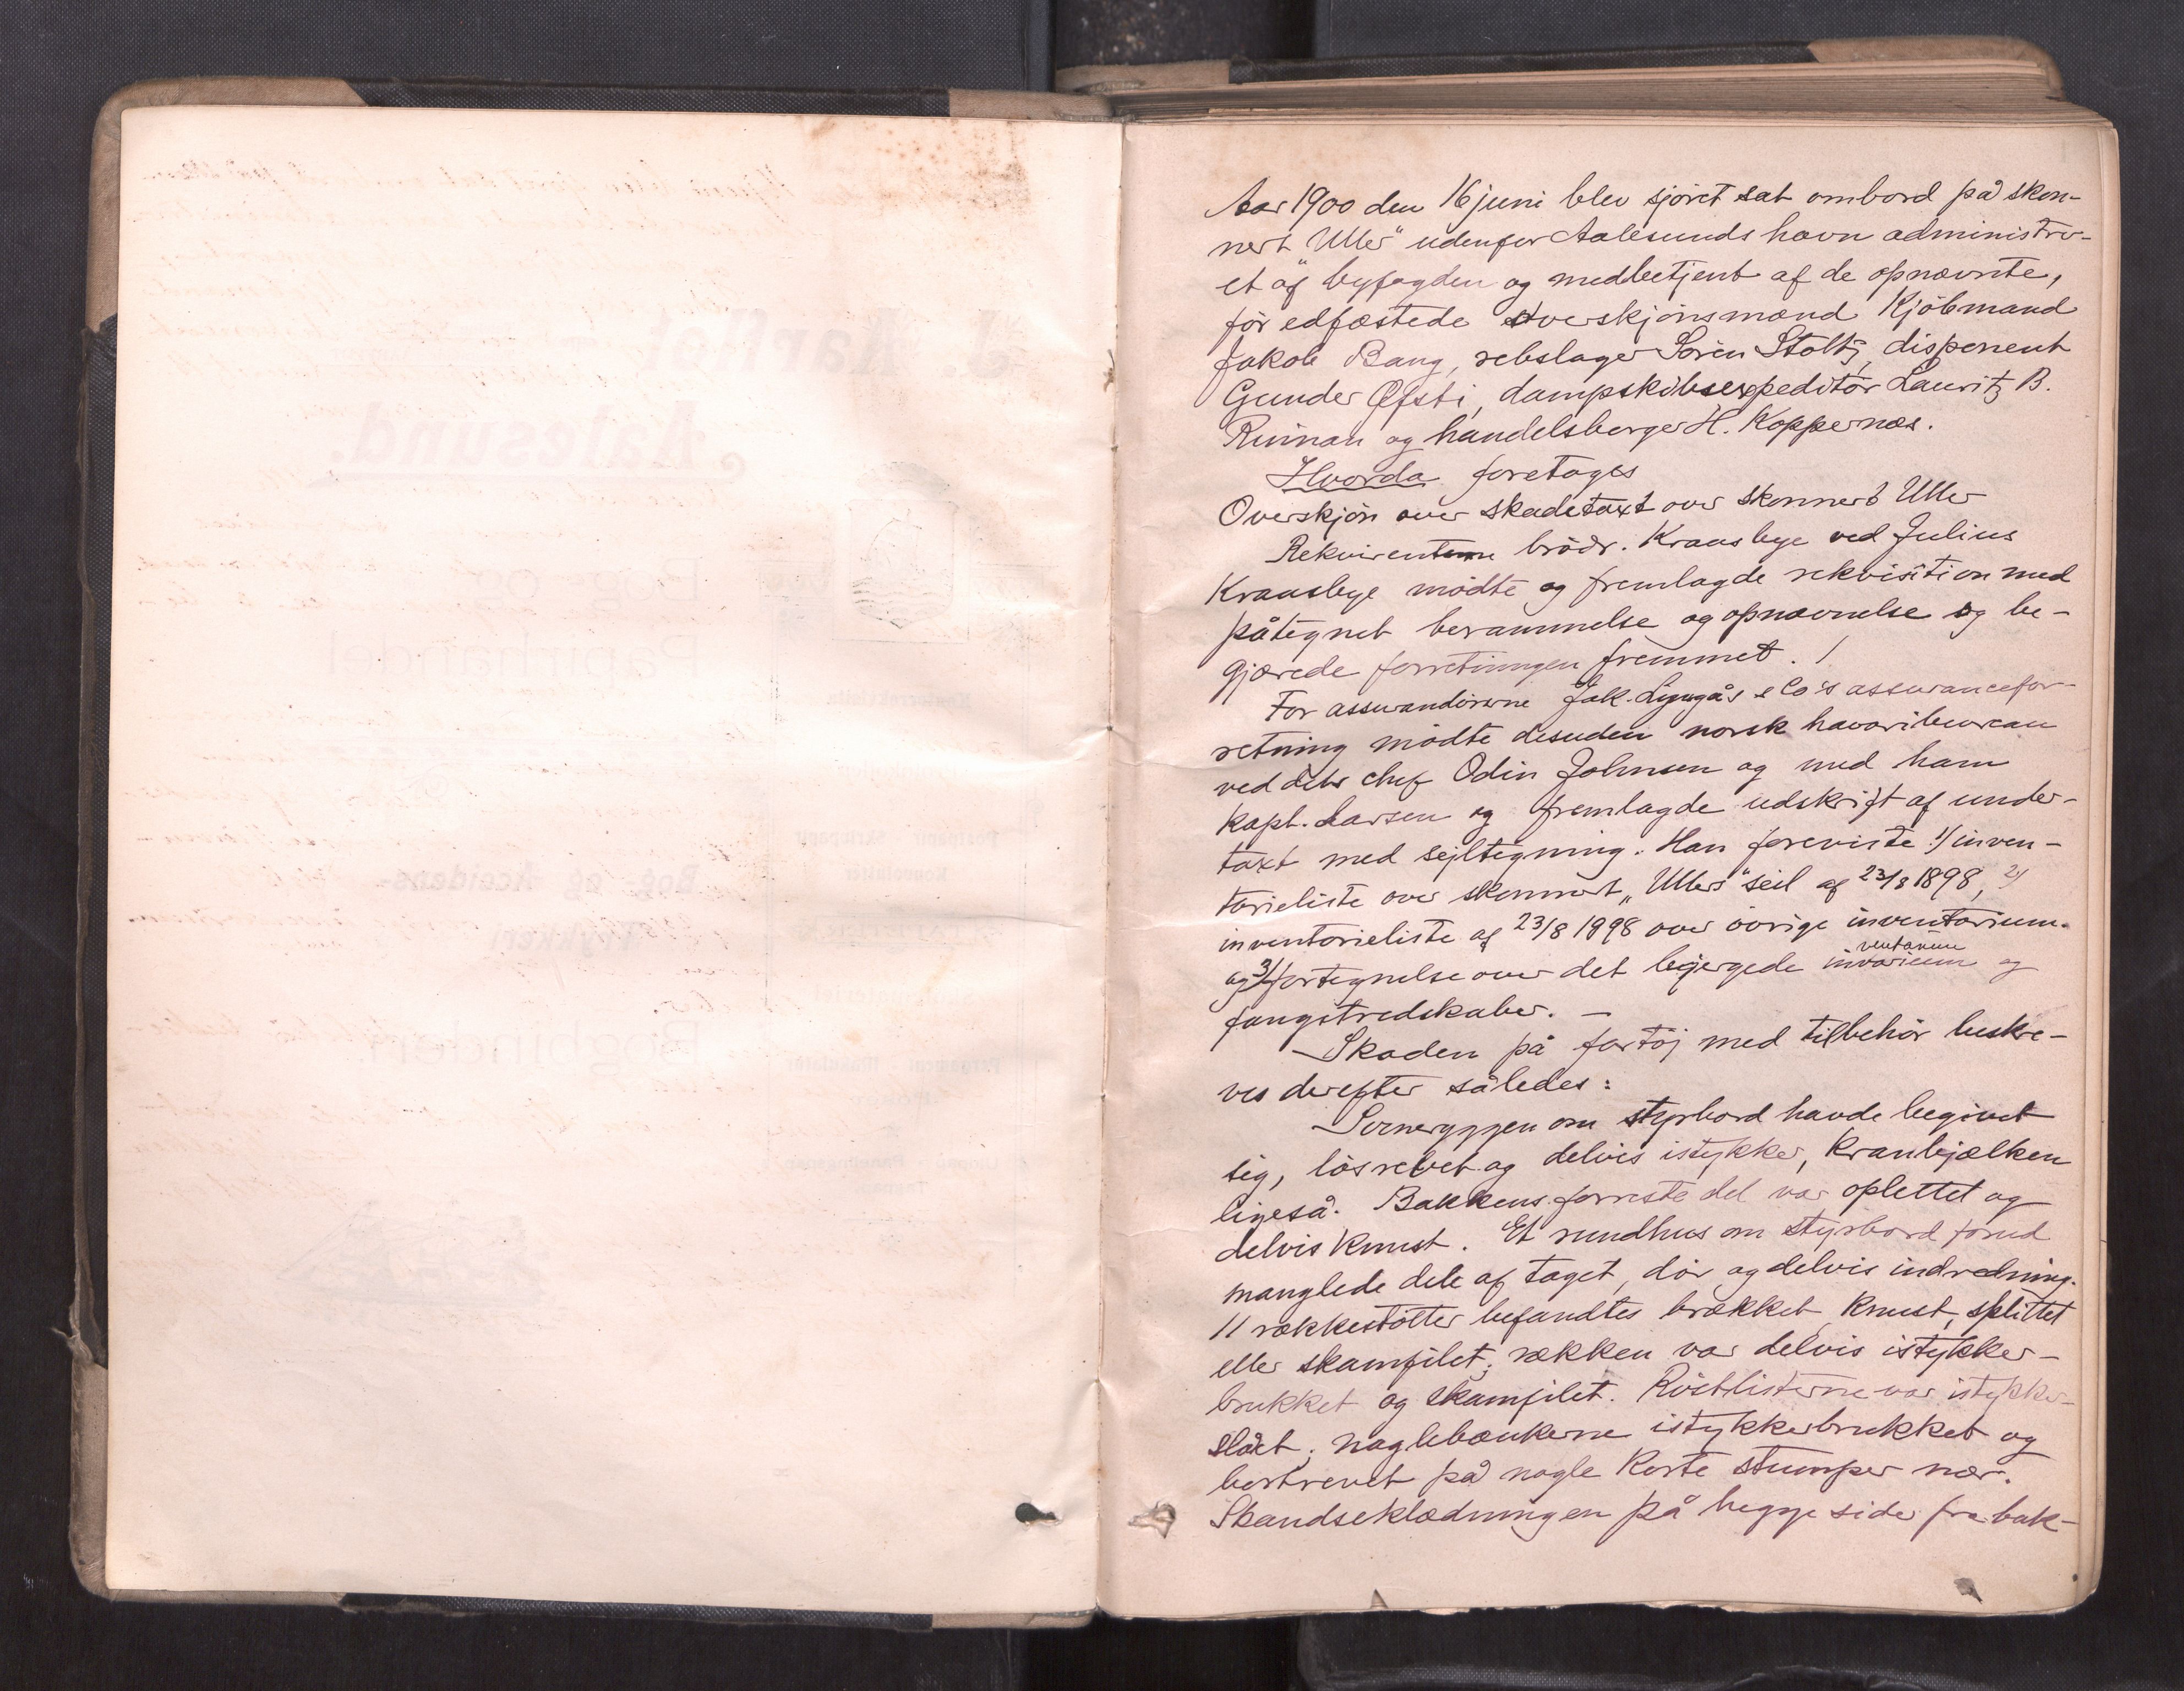 Aar 1900 den 16 juni blev sjöret sat ombord på skon-
nert "Uller" udenfor Aalesunds havn administre-
et af byfogden og medbetjent af de opnævnte,
för edfæstede overskjönsmænd Kjöbmand
Jakob Bang, rebslager Sören Stoltz, disponent
Gunder Öfsti, dampskibsexpeditör Lauritz B.
og handelsborger H. Koppernæs.
Hvorda foretages
Overskjön over skadetaxt over skonnert Uller
Rekvirenterne brödr. Kraasbye ved Julius
Kraasbye mödte og fremlagde rekvisition med
påtegnet berammelse og opnævnelse og be-
gjærede forretningen fremmet. /
For assurandörerne Jak. Lyngås & Co's assurancefor-
retning mödte desuden norsk havaribureau
ved dets chef Odin Johnsen og med ham
Kapt. Larsen og fremlagde udskrift af under-
taxt med sejltegning. Han foreviste 1/ inven-
tarieliste over skonnert „Ullers" seil af 23/8 1898, 2/
inventarieliste af 23/8 1998 over övrige inventarium.
og 3/ fortegnelse over det bejergede inventarium og
fangstredskaber. —
Skaden på fartöj med tilbehör beskre-
ves derefter således:
om styrbord havde begivet
sig, lösrevet og delvis istykker, Kranbjælken
ligeså. Bakkens forreste del var oplettet og
delvis Knust. Et rundhus om styrbord forud
manglede dele af taget, dör og delvis indredning.
11 rækkestötter befandtes brækket, Knust, splittet
eller skamfilet; rækken var delvis istykker-
brukket og skamfilet. Röstlisterne var istykker-
slået; naglebænkerne istykkerbrukket og
bortrevet på nogle Korte stumper nær.
Skandseklædningen på begge sider fra bak-